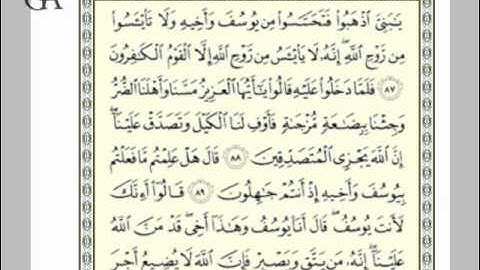 GA
يَـٰبَنِىَّ ٱذْهَبُوا۟ فَتَحَسَّسُوا۟ مِن يُوسُفَ وَأَخِيهِ وَلَا تَا۟يْـَٔسُوا۟
مِن رَّوْحِ ٱللَّهِ ۖ إِنَّهُۥ لَا يَا۟يْـَٔسُ مِن رَّوْحِ ٱللَّهِ إِلَّا ٱلْقَوْمُ ٱلْكَـٰفِرُونَ
٨٧ فَلَمَّا دَخَلُوا۟ عَلَيْهِ قَالُوا۟ يَـٰٓأَيُّهَا ٱلْعَزِيزُ مَسَّنَا وَأَهْلَنَا ٱلضُّرُّ
وَجِئْنَا بِبِضَـٰعَةٍ مُّزْجَىٰةٍ فَأَوْفِ لَنَا ٱلْكَيْلَ وَتَصَدَّقْ عَلَيْنَآ ۖ
إِنَّ ٱللَّهَ يَجْزِى ٱلْمُتَصَدِّقِينَ ٨٨ قَالَ هَلْ عَلِمْتُم مَّا فَعَلْتُم
بِيُوسُفَ وَأَخِيهِ إِذْ أَنتُمْ جَـٰهِلُونَ ٨٩ قَالُوٓا۟ أَءِنَّكَ
لَأَنتَ يُوسُفُ ۖ قَالَ أَنَا۠ يُوسُفُ وَهَـٰذَآ أَخِى ۖ قَدْ مَنَّ ٱللَّهُ
عَلَيْنَآ ۖ إِنَّهُۥ مَن يَتَّقِ وَيَصْبِرْ فَإِنَّ ٱللَّهَ لَا يُضِيعُ أَجْرَ